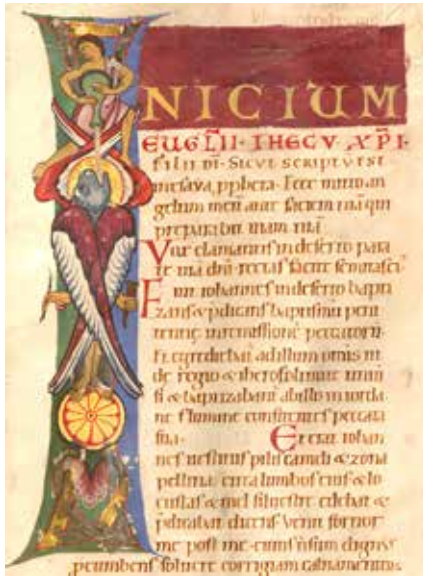 INICIUM
EUGLII · IHECV XPI ·
FILII DI · SICUT SCRIPTU EST
in esaya ppheta. Ecce mitto an
gelum meu ante faciem tua qui
preparabit uiam tua
Vox clamantis in deserto para
te uia dni rectas facite semitas ei
Fuit iohannes in deserto bapti
zans & pdicans baptismu peni
tentie in remissione peccatoru
Et egrediebat ad illum omis iu
de regio & iherosolimite uniu
si & baptizabant ab illo in iorda
ne flumine confitentes peccata
sua. Et erat iohan
nes uestitus pilis cameli & zona
pellicia circa lumbos eius & lo
custas & mel siluestre edebat &
pdicabat dicens Venit fortior
me post me cuius n sum dignus
pcumbens soluere corrigiam